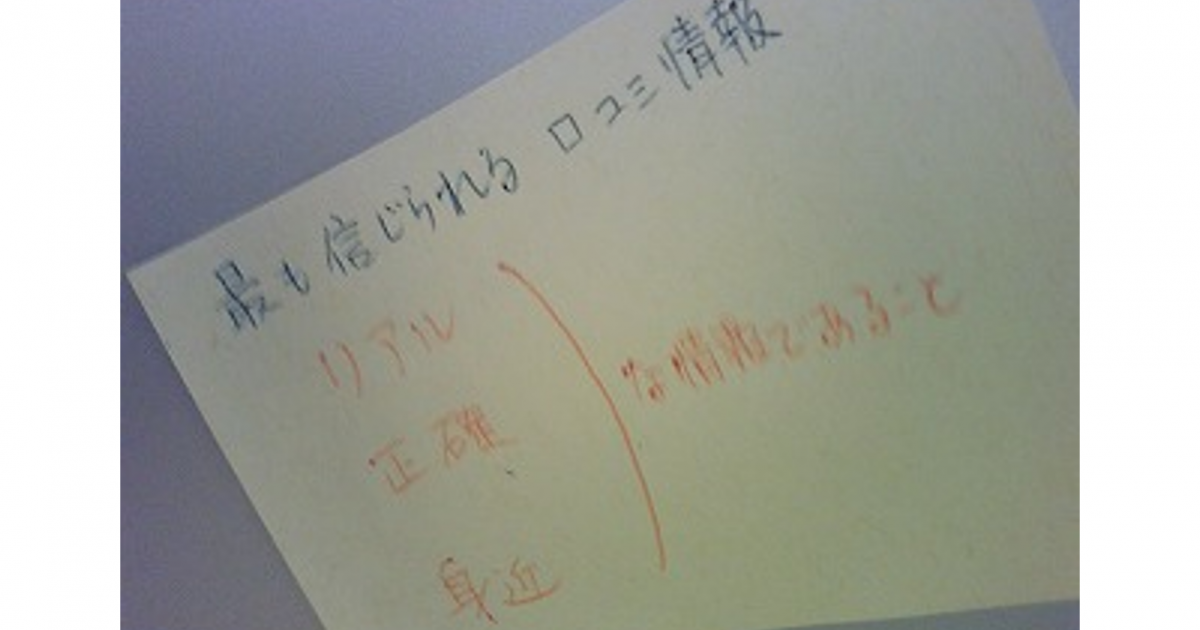 最も信じられる 口コミ情報
リアル
正確
身近
な情報であること